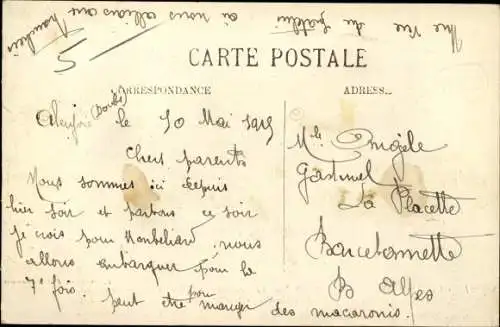 Une vue du
où nous allions au
5
CARTE POSTALE
CORRESPONDANCE
ADRESSE
(Doubs)
le 10 Mai 1915
Chers parents
Nous sommes ici depuis
hier soir et partons ce soir
je crois pour Montbeliard, nous
allons embarquer pour la
7e fois. peut etre pour manger des macaronis.
Mlle Angèle
La Placette
Barcelonnette
B Alpes